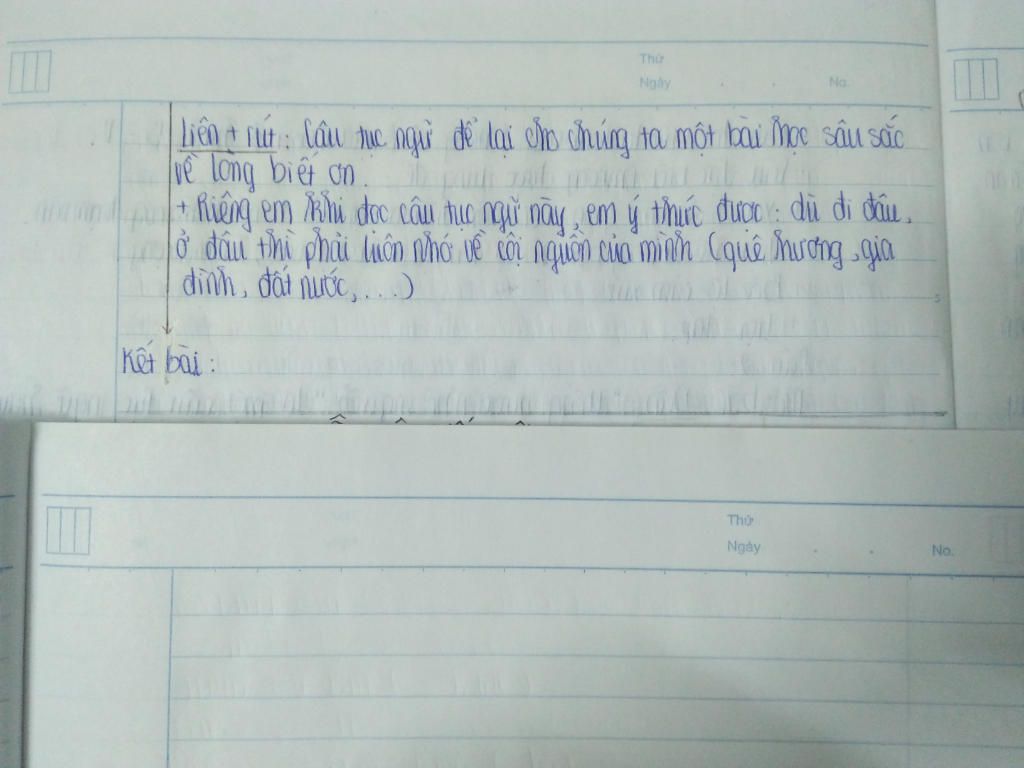 Thứ
Ngày . . No.
Liên + rút: Câu tục ngữ để lại cho chúng ta một bài học sâu sắc
về lòng biết ơn.
+ Riêng em khi đọc câu tục ngữ này, em ý thức được: dù đi đâu,
ở đâu thì phải luôn nhớ về cội nguồn của mình (quê hương, gia
đình, đất nước,...)
Kết bài:
Thứ
Ngày . . No.